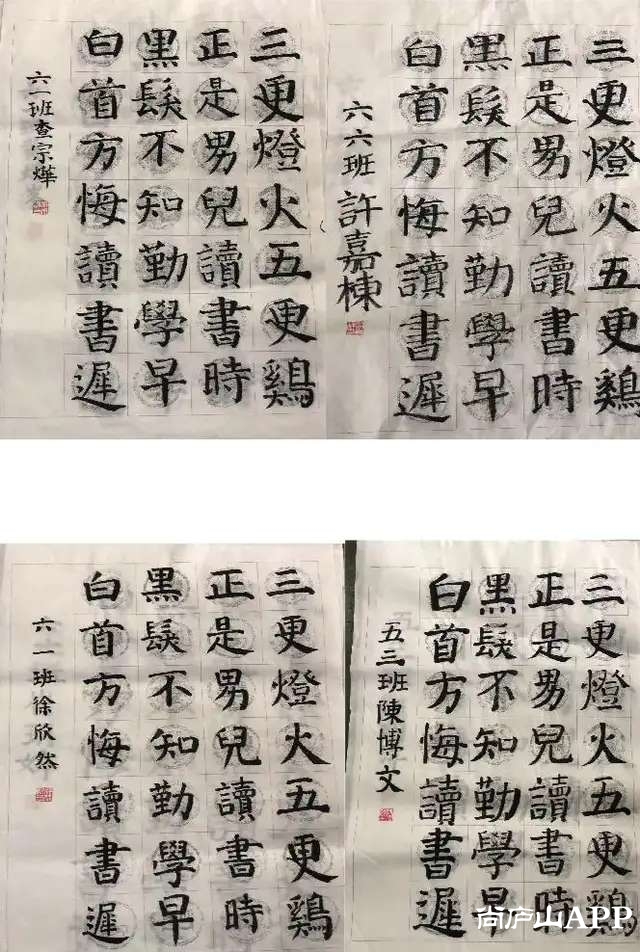 三更燈火五更鷄
正是男兒讀書時
黑髮不知勤學早
白首方悔讀書遲
六一班查宗燁
三更燈火五更鷄
正是男兒讀書時
黑髮不知勤學早
白首方悔讀書遲
六六班許嘉棟
三更燈火五更鷄
正是男兒讀書時
黑髮不知勤學早
白首方悔讀書遲
六一班徐欣然
三更燈火五更鷄
正是男兒讀書時
黑髮不知勤學早
白首方悔讀書遲
五三班陳博文
尚庐山APP